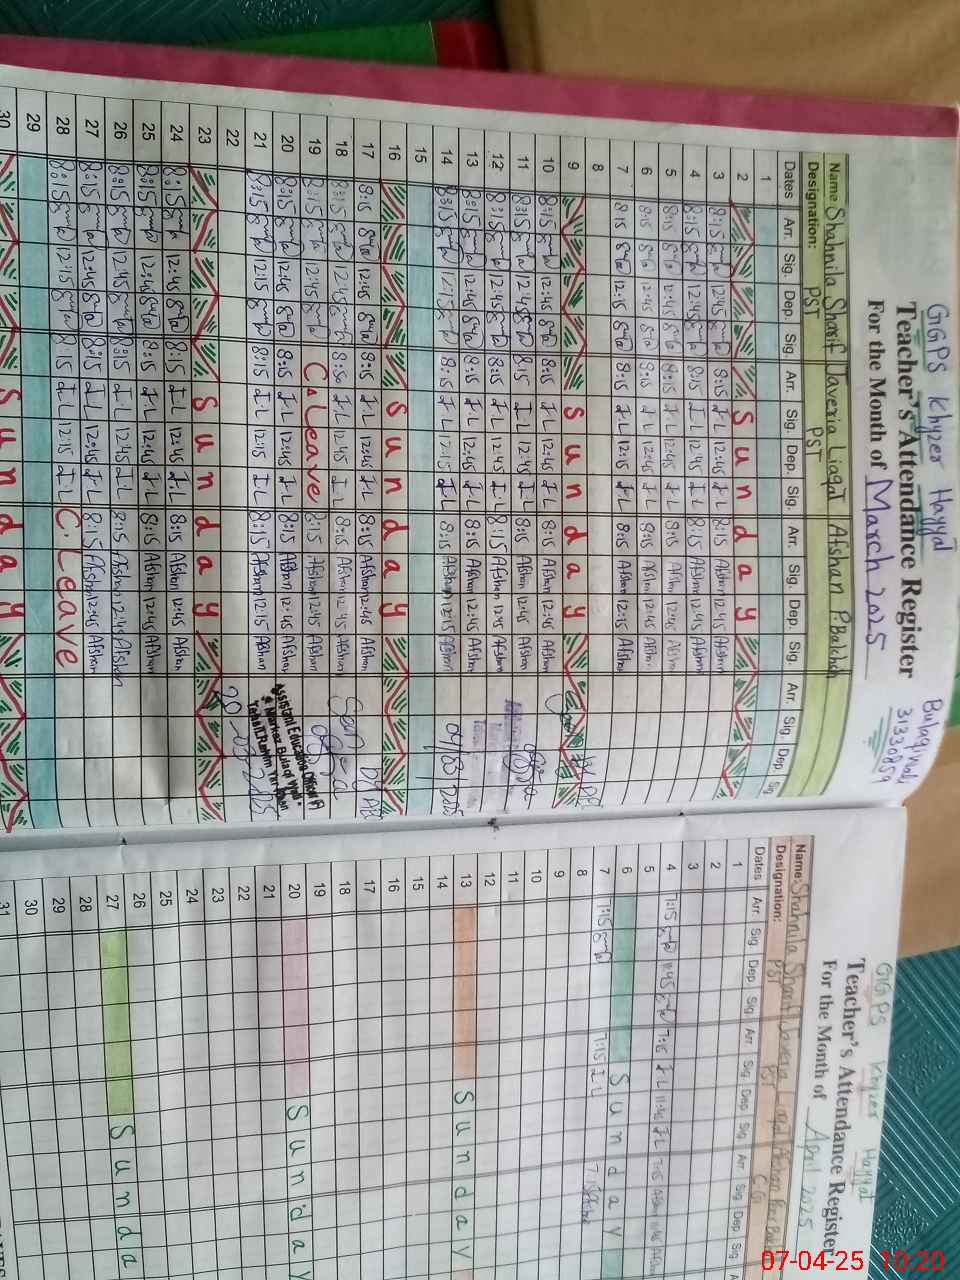 GGPS Khyzer Hayyat Bulaqi wali
Teacher's Attendance Register 31330859
For the Month of March 2025
Name: Shahnila Sharif Javeria Liaqat Afshan P.Bakhsh
Designation: PST PST
Dates Arr. Sig. Dep. Sig. Arr. Sig. Dep. Sig. Arr. Sig. Dep. Sig. Arr. Sig. Dep. Sig.
1
2 Sunday
3 8:15 12:45 8:15 I L 12:45 I L 8:15 Afshan 12:45 Afshan
4 8:15 12:45 8:15 I L 12:45 I L 8:15 Afshan 12:45 Afshan
5 8:15 12:45 8:15 I L 12:45 I L 8:15 Afshan 12:45 Afshan
6 8:15 12:45 8:15 I L 12:45 I L 8:15 Afshan 12:45 Afshan
7 8:15 12:15 8:15 I L 12:15 I L 8:15 Afshan 12:15 Afshan
8
9 Sunday
10 8:15 12:45 8:15 I L 12:45 I L 8:15 Afshan 12:45 Afshan
11 8:15 12:45 8:15 I L 12:45 I L 8:15 Afshan 12:45 Afshan
12 8:15 12:45 8:15 I L 12:45 I L 8:15 Afshan 12:45 Afshan
13 8:15 12:45 8:15 I L 12:45 I L 8:15 Afshan 12:45 Afshan
14 8:15 12:15 8:15 I L 12:15 I L 8:15 Afshan 12:15 Afshan
15
16 Sunday
17 8:15 12:45 8:15 I L 12:45 I L 8:15 Afshan 12:45 Afshan
18 8:15 12:45 8:30 I L 12:45 I L 8:15 Afshan 12:45 Afshan
19 8:15 12:45 C.Leave 8:15 Afshan 12:45 Afshan
20 8:15 12:45 8:15 I L 12:45 I L 8:15 Afshan 12:45 Afshan
21 8:15 12:15 8:15 I L 12:15 I L 8:15 Afshan 12:15 Afshan
Assistant Education Officer
Markaz Bulaqi Wali
Tehsil Rahim Yar Khan
20-03-2025
22
23 Sunday
24 8:15 12:45 8:15 I L 12:45 I L 8:15 Afshan 12:45 Afshan
25 8:15 12:45 8:15 I L 12:45 I L 8:15 Afshan 12:45 Afshan
26 8:15 12:45 8:15 I L 12:45 I L 8:15 Afshan 12:45 Afshan
27 8:15 12:45 8:15 I L 12:45 I L 8:15 Afshan 12:45 Afshan
28 8:15 12:15 8:15 I L 12:15 I L C.Leave
29
30 Sunday
GGPS Khyzer Hayyat
Teacher's Attendance Register
For the Month of April 2025
Name: Shahnila Sharif Javeria Liaqat Afshan
Designation: PST PST
Dates Arr. Sig. Dep. Sig. Arr. Sig. Dep. Sig. Arr. Sig. Dep. Sig.
1
2
3
4 7:15 11:45 7:15 I L 11:45 I L 7:15 Afshan 11:45 Afshan
5
6 Sunday
7 7:15 7:15 I L 7:15
8
9
10
11
12
13 Sunday
14
15
16
17
18
19
20 Sunday
21
22
23
24
25
26
27 Sunda
28
29
30
31
07-04-25 10:20